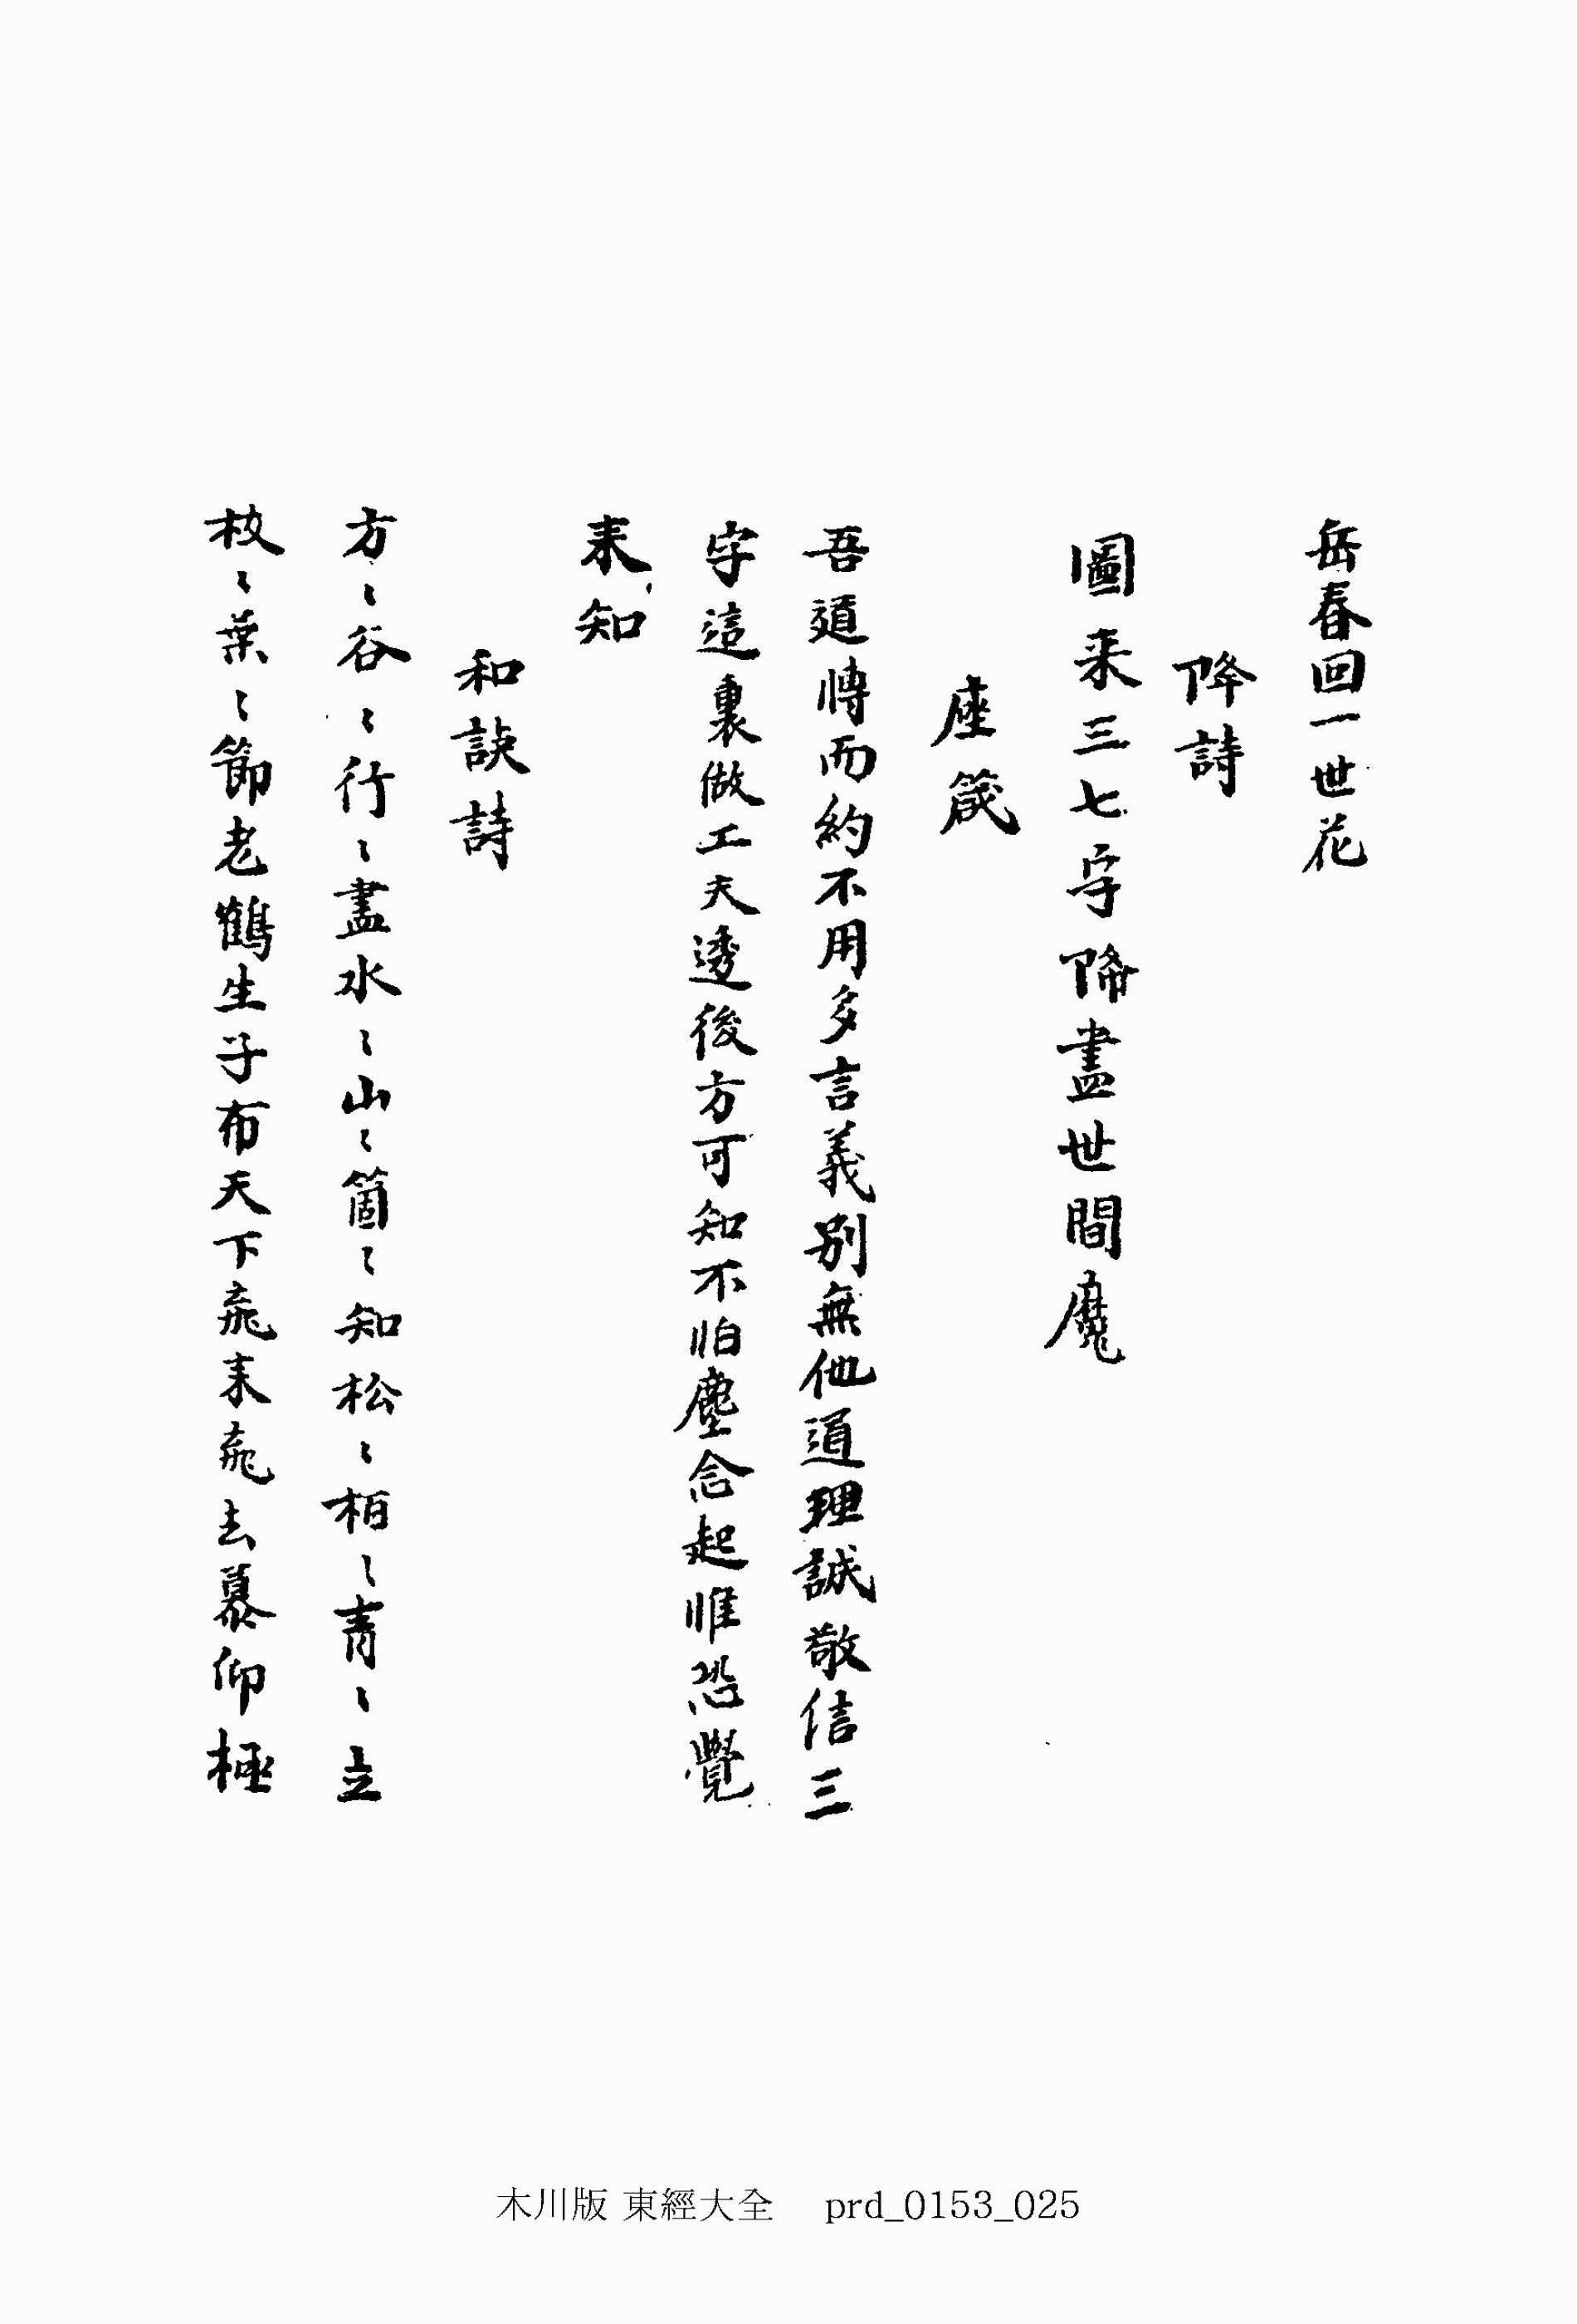 岳春回一世花
降詩
圖来三七字降盡世間魔
座箴
吾道博而約不用多言義別無他道理誠敬信三
字這裏做工夫透後方可知不怕塵念起惟恐覺
来知
和訣詩
方〻谷〻行〻盡水〻山〻箇〻知松〻栢〻靑〻立
枝〻葉〻節老鶴生子布天下飛来飛去慕仰極
木川版 東經大全 prd_0153_025